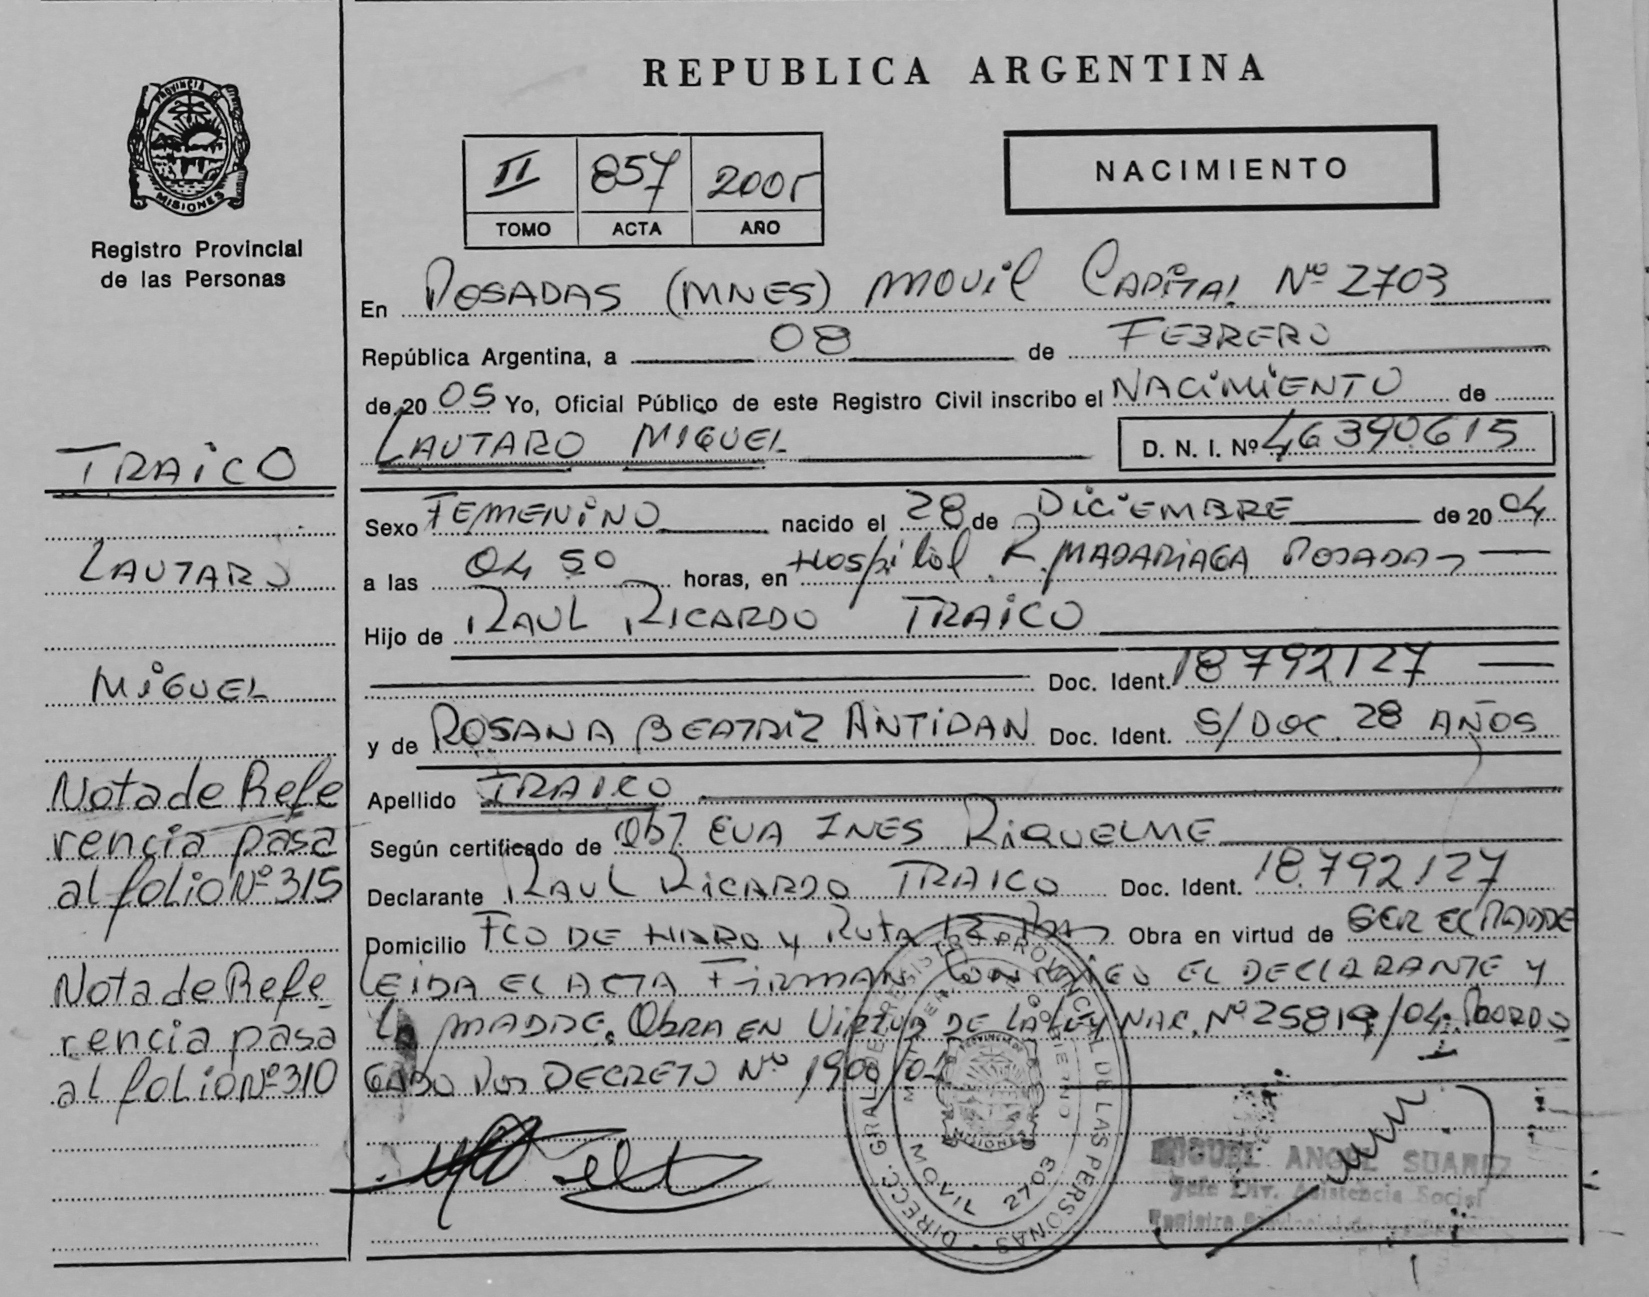 REPUBLICA ARGENTINA
PROVINCIA DE
MISIONES
Registro Provincial
de las Personas
II 857 2005
TOMO ACTA AÑO
NACIMIENTO
En POSADAS (MNES) MOVIL CAPITAL Nº 2703
República Argentina, a 08 de FEBRERO
de 20 05 Yo, Oficial Público de este Registro Civil inscribo el NACIMIENTO de
LAUTARO MIGUEL D. N. I. Nº 46390615
TRAICO
LAUTARO
MIGUEL
Nota de Refe
rencia pasa
al folio Nº 315
Nota de Refe
rencia pasa
al folio Nº 310
Sexo FEMENINO nacido el 28 de DICIEMBRE de 20 04
a las 04 50 horas, en Hospital R. MADARIAGA POSADAS
Hijo de RAUL RICARDO TRAICO
Doc. Ident. 18792127
y de ROSANA BEATRIZ ANTIDAN Doc. Ident. S/DOC 28 AÑOS
Apellido TRAICO
Según certificado de Obt EVA INES RIQUELME
Declarante RAUL RICARDO TRAICO Doc. Ident. 18.792127
Domicilio FCO DE HARO y RUTA 12 Obra en virtud de SER EL PADRE
LEIDA EL ACTA FIRMAN EL DECLARANTE Y
LA MADRE. OBRA EN VIRTUD DE LA LEY NAC. Nº 25819/04
POR DECRETO Nº 1900/04
DIRECC. GRAL. DE REGISTRO PROVINCIAL DE LAS PERSONAS
MOVIL 2703
MISIONES
MIGUEL ANGEL SUAREZ
Jefe Div. Asistencia Social
Registro Provincial de las